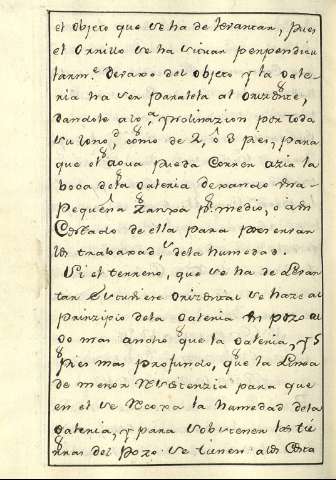 el objeto que se ha de levantar, pues
el ornillo se ha situar perpendicu
larm.e devaxo del objeto y la Gale-
ria ha ser paralela al orizonte,
dandole alg.a ynclinazion por toda
su long.d como de 2, ô 3 pies, para
que el agua pueda correr azia la
boca dela Galeria dexando una
pequeña zanxa p.r medio, o âun
Costado de ella para preservar
los trabaxad.s dela humedad.
Si el terreno, que se ha de levan
tar estuviere orizontal se haze al
prinzipio dela Galeria un pozo al
go mas ancho que la Galeria, y 5
pies mas profundo, que la Linea
de menor Resistenzia para que
en el se Recoxa la humedad dela
Galeria, y para sobstener las tie
rras del Pozo se tienen a los Costa